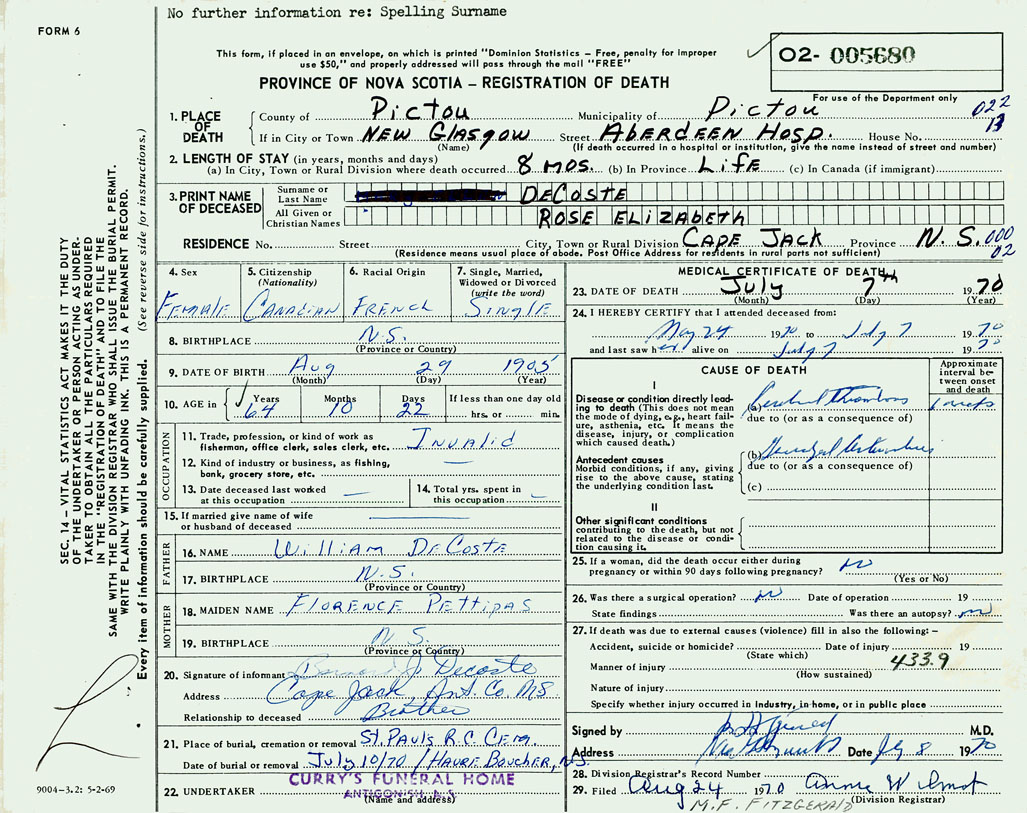 No further information re: Spelling Surname
FORM 6
This form, if placed in an envelope, on which is printed "Dominion Statistics – Free, penalty for improper
use $50," and properly addressed will pass through the mail "FREE"
O2- 005680
PROVINCE OF NOVA SCOTIA – REGISTRATION OF DEATH
For use of the Department only
022
13
1. PLACE OF DEATH
County of Pictou Municipality of Pictou
If in City or Town NEW GLASGOW Street ABERDEEN HOSP. House No.
(Name) (If death occurred in a hospital or institution, give the name instead of street and number)
2. LENGTH OF STAY (in years, months and days)
(a) In City, Town or Rural Division where death occurred 8 MOS. (b) In Province LIFE (c) In Canada (if immigrant)
3. PRINT NAME OF DECEASED
Surname or Last Name DECOSTE
All Given or Christian Names ROSE ELIZABETH
RESIDENCE No. Street City, Town or Rural Division CAPE JACK Province N.S. 000
02
(Residence means usual place of abode. Post Office Address for residents in rural parts not sufficient)
4. Sex
FEMALE
5. Citizenship
(Nationality)
CANADIAN
6. Racial Origin
FRENCH
7. Single, Married,
Widowed or Divorced
(write the word)
SINGLE
8. BIRTHPLACE N.S.
(Province or Country)
9. DATE OF BIRTH Aug 29 1905
(Month) (Day) (Year)
10. AGE in Years Months Days If less than one day old
64 10 22 hrs. or min.
OCCUPATION
11. Trade, profession, or kind of work as
fisherman, office clerk, sales clerk, etc. Invalid
12. Kind of industry or business, as fishing,
bank, grocery store, etc. —
13. Date deceased last worked
at this occupation —
14. Total yrs. spent in
this occupation —
15. If married give name of wife
or husband of deceased —
FATHER
16. NAME WILLIAM DECOSTE
17. BIRTHPLACE N.S.
(Province or Country)
MOTHER
18. MAIDEN NAME FLORENCE PETTIPAS
19. BIRTHPLACE N.S.
(Province or Country)
20. Signature of informant J. Decoste
Address Cape Jack, Ant. Co. NS
Relationship to deceased Brother
21. Place of burial, cremation or removal St. Pauls R.C. Cem.
Date of burial or removal July 10/70 / HAVRE BOUCHER, N.S.
22. UNDERTAKER CURRY'S FUNERAL HOME
ANTIGONISH, N.S.
(Name and address)
MEDICAL CERTIFICATE OF DEATH
23. DATE OF DEATH July 7th 1970
(Month) (Day) (Year)
24. I HEREBY CERTIFY that I attended deceased from:
May 24 1970 to July 7 1970
and last saw her alive on July 7 1970
CAUSE OF DEATH
Approximate
interval be-
tween onset
and death
I
Disease or condition directly lead-
ing to death (This does not mean
the mode of dying, e.g., heart fail-
ure, asthenia, etc. It means the
disease, injury, or complication
which caused death.
(a) Cerebral Thrombosis
due to (or as a consequence of)
Antecedent causes
Morbid conditions, if any, giving
rise to the above cause, stating
the underlying condition last.
(b)
due to (or as a consequence of)
(c)
II
Other significant conditions
contributing to the death, but not
related to the disease or condi-
tion causing it.
25. If a woman, did the death occur either during
pregnancy or within 90 days following pregnancy? no
(Yes or No)
26. Was there a surgical operation? no Date of operation 19
State findings Was there an autopsy? no
27. If death was due to external causes (violence) fill in also the following: –
Accident, suicide or homicide? Date of injury 19
(State which) 433.9
Manner of injury
(How sustained)
Nature of injury
Specify whether injury occurred in industry, in home, or in public place
Signed by M.D.
Address Date July 8 1970
28. Division Registrar's Record Number
29. Filed Aug 24 1970 Annie Wilmot
(Division Registrar)
M.F. FITZGERALD
SEC. 14 – VITAL STATISTICS ACT MAKES IT THE DUTY
OF THE UNDERTAKER OR PERSON ACTING AS UNDER-
TAKER TO OBTAIN ALL THE PARTICULARS REQUIRED
IN THE "REGISTRATION OF DEATH" AND TO FILE THE
SAME WITH THE DIVISION REGISTRAR WHO SHALL ISSUE THE BURIAL PERMIT.
WRITE PLAINLY WITH UNFADING INK. THIS IS A PERMANENT RECORD.
Every item of information should be carefully supplied. (See reverse side for instructions.)
9004-3.2: 5-2-69